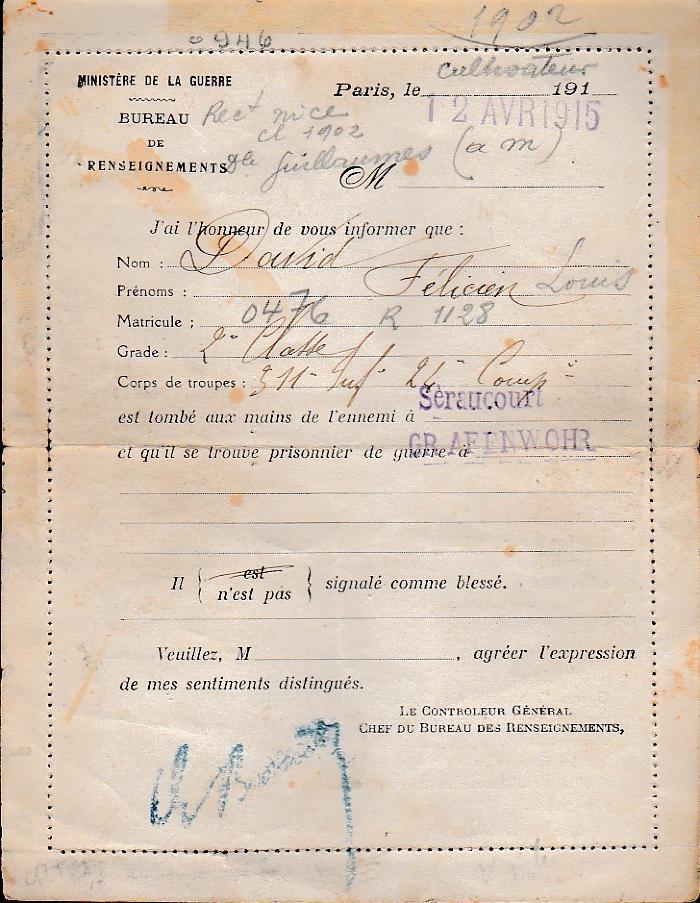 0946
1902
cultivateur
MINISTÈRE DE LA GUERRE
Paris, le 191
12 AVR 1915
BUREAU
DE
RENSEIGNEMENTS
Rect nice
cl 1902
Guillaumes (a m)
M
J'ai l'honneur de vous informer que :
Nom : David
Prénoms : Félicien Louis
Matricule ; 0476 R 1128
Grade : 2e Classe
Corps de troupes : 311e Inf 24e Comp
est tombé aux mains de l'ennemi à Séraucourt
et qu'il se trouve prisonnier de guerre à GRAFENWOHR
Il { est
n'est pas } signalé comme blessé.
Veuillez, M , agréer l'expression
de mes sentiments distingués.
LE CONTROLEUR GÉNÉRAL
CHEF DU BUREAU DES RENSEIGNEMENTS,